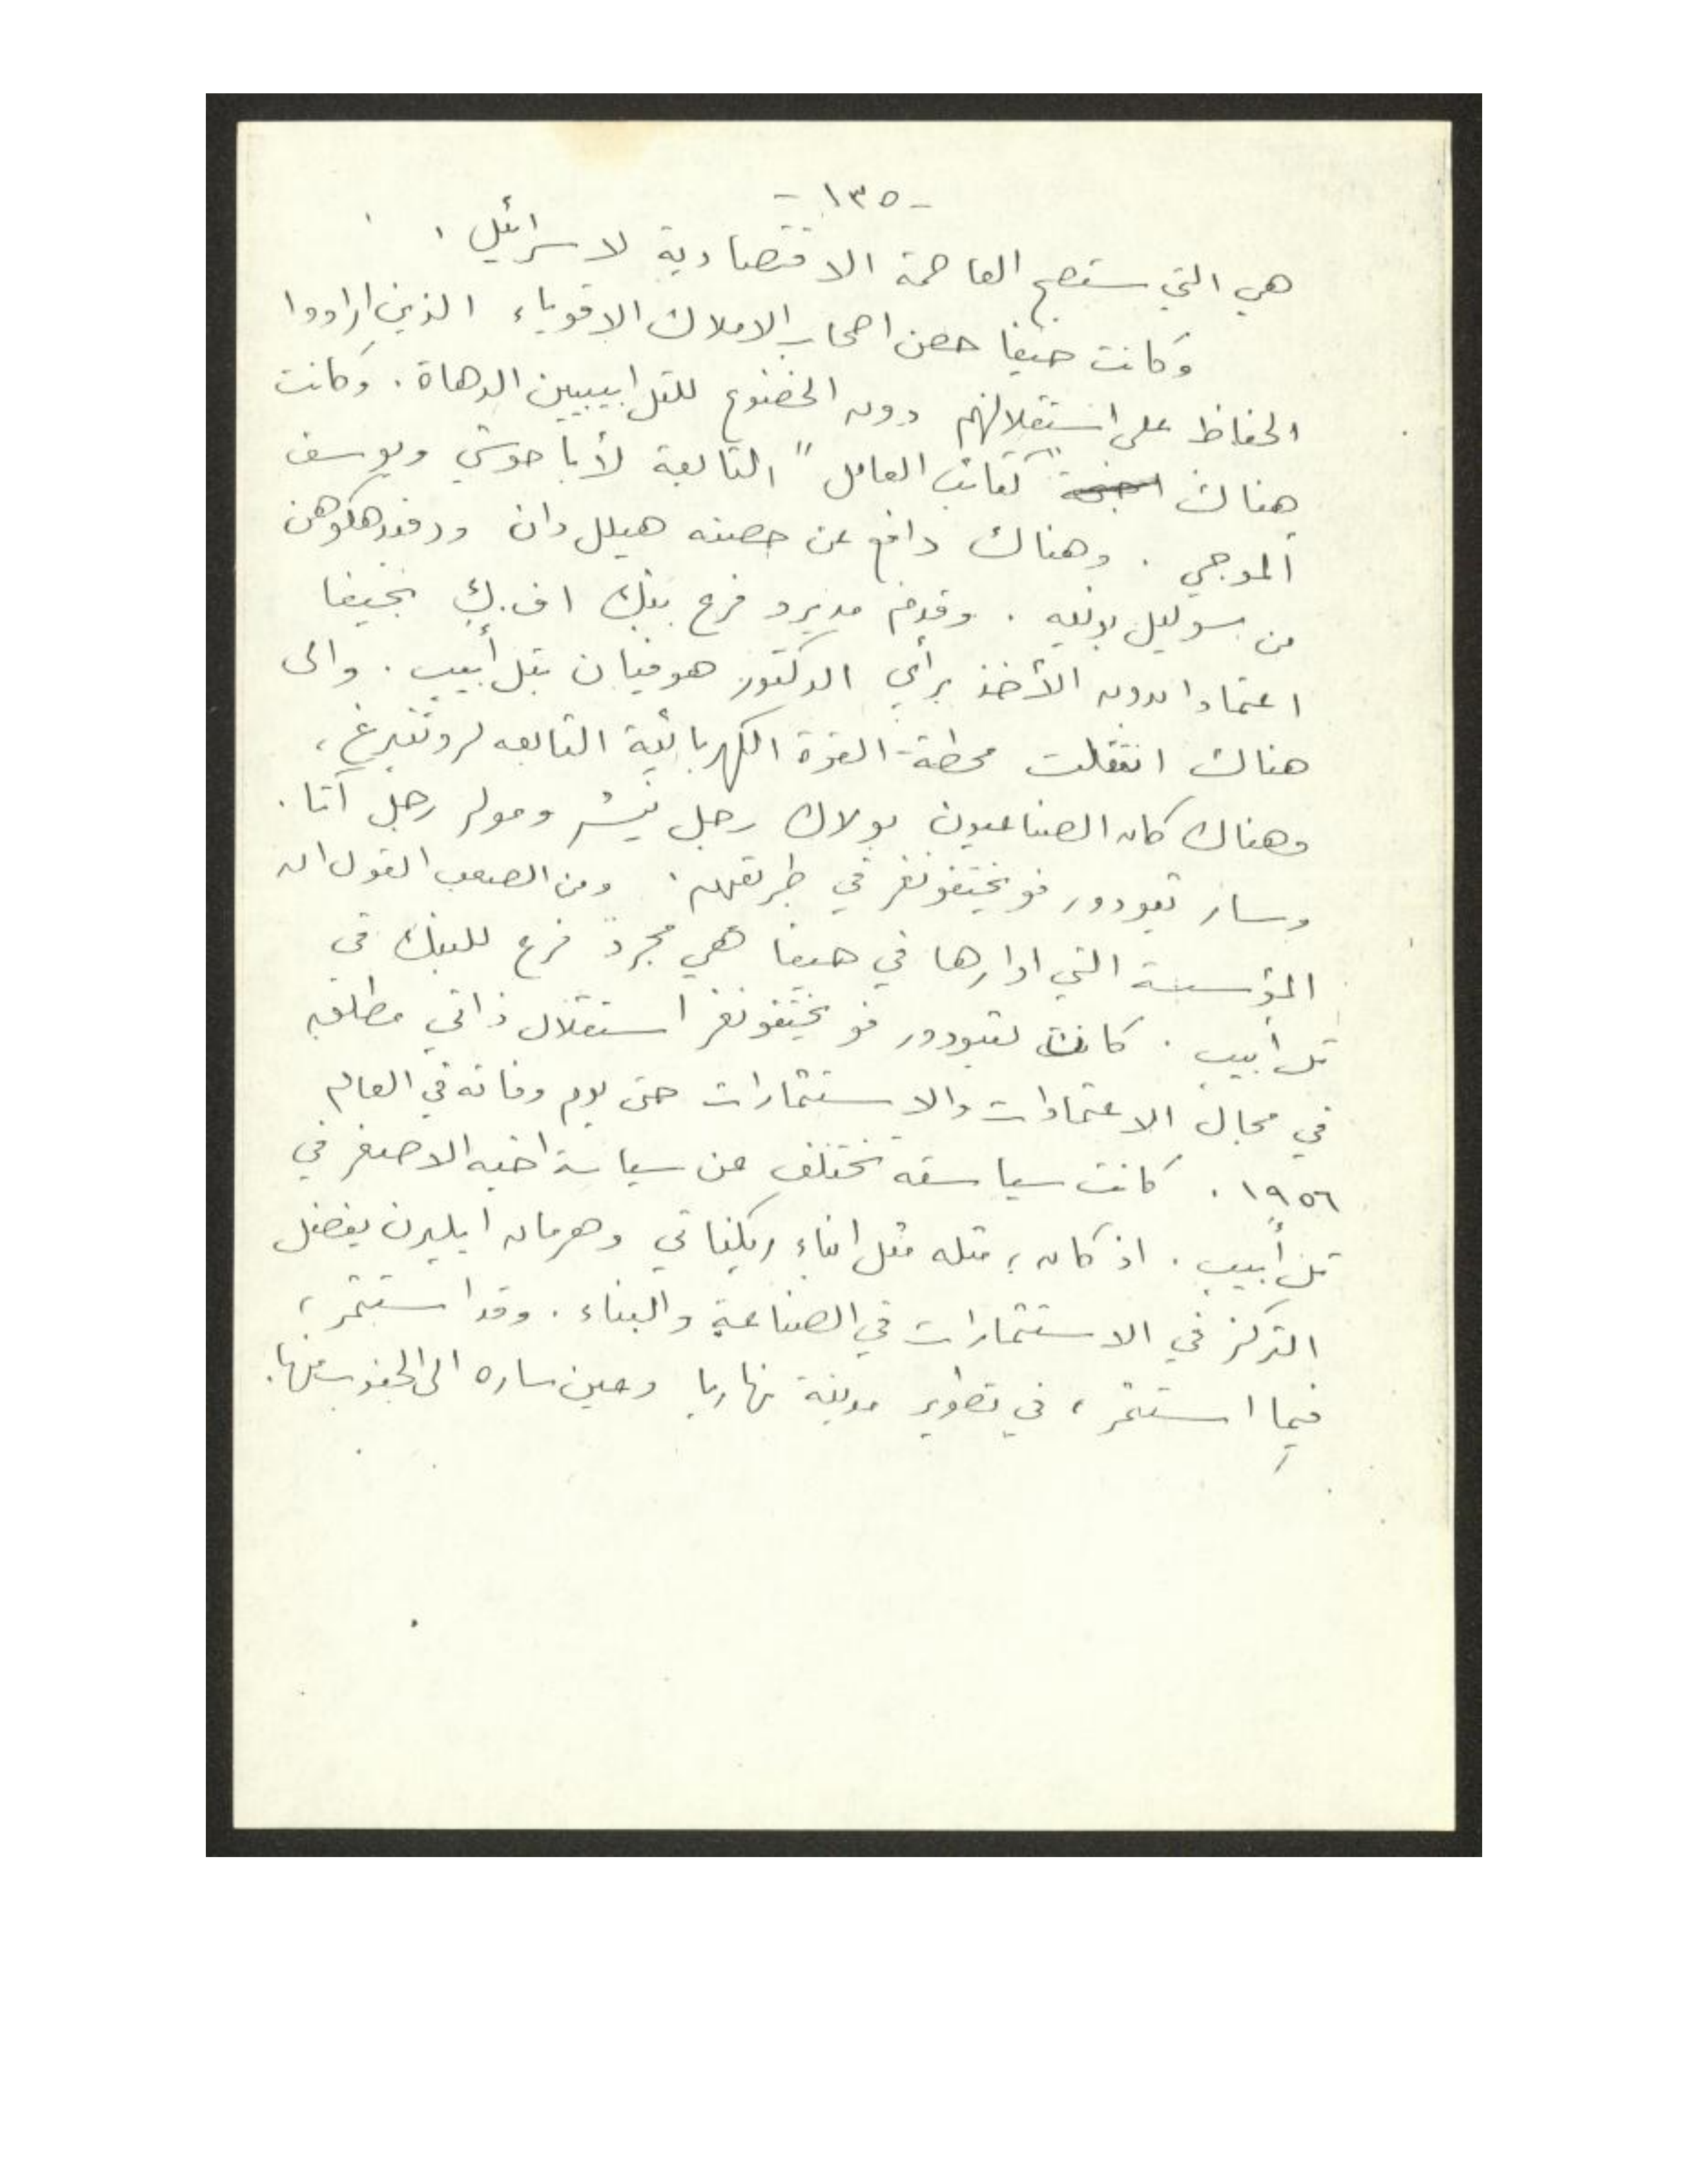 - ١٣٥ -
هي التي ستصبح العاصمة الاقتصادية لاسرائيل .
وكانت حيفا حصن اصحاب الاملاك الاقوياء الذين ارادوا
الحفاظ على استقلالهم دون الخضوع للتل ابيبيين الدهاة . وكانت
هناك "كتائب العامل" التابعة لأبا حوشي ويوسف
الموجي . وهناك دافع عن حصنه هيلل دان
من سوليل بونيه . وقدم مديرو فرع بنك اف.ك بحيفا
اعتمادا بدون الأخذ برأي الدكتور هوفيان بتل أبيب . والى
هناك انتقلت محطة القوة الكهربائية التابعه لروتنبرغ ،
وهناك كان الصناعيون بولاك رجل نيشر ومولر رجل آتا .
وسار تيودور فويختفونغر في طريقهم . ومن الصعب القول ان
المؤسسة التي ادارها في حيفا هي مجرد فرع للبنك في
تل أبيب . كانت لتيودور فويختفونغر استقلال ذاتي مطلق
في مجال الاعتمادات والاستثمارات حتى يوم وفاته في العام
١٩٥٦ . كانت سياسته تختلف عن سياسة اخيه الاصغر في
تل أبيب . اذ كان ، مثله مثل ابناء ريكناتي وهرمان ايليرن يفضل
التركز في الاستثمارات في الصناعة والبناء . وقد استثمر ،
فيما استثمر ، في تطوير مدينة نهاريا وعين ساره الى الجنوب منها .